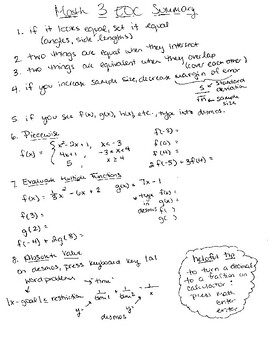 Math 3 EOC Summary
1. if it looks equal, set it equal
(angles, side lengths)
2. two things are equal when they intersect
3. two things are equivalent when they overlap
(cover each other)
4. if you increase sample size, decrease margin of error
s ← standard deviation
√n ← sample size
5. if you see f(x), g(x), h(x), etc., type into desmos.
6. Piecewise
f(x) = { x² - 2x + 1, x < -3
4x + 1, -3 ≤ x < 4
5, x ≥ 4
f(-3) =
f(0) =
f(4) =
2f(-5) + 3f(4) =
7. Evaluate Multiple Functions
f(x) = 1/3 x² - 6x + 2 g(x) = 7x - 1
f(3) =
g(2) =
f(-4) + 2g(8) =
*type in desmos
f(x) =
g(x) =
f( )
g( )
8. Absolute Value
on desmos, press keyboard key |a|
word problems
|x - goal| ≤ restriction
"time"
1/time1 + 1/time2 = 1/x
y= y=
desmos
Helpful Tip
to turn a decimal
to a fraction in
calculator:
press math
enter
enter